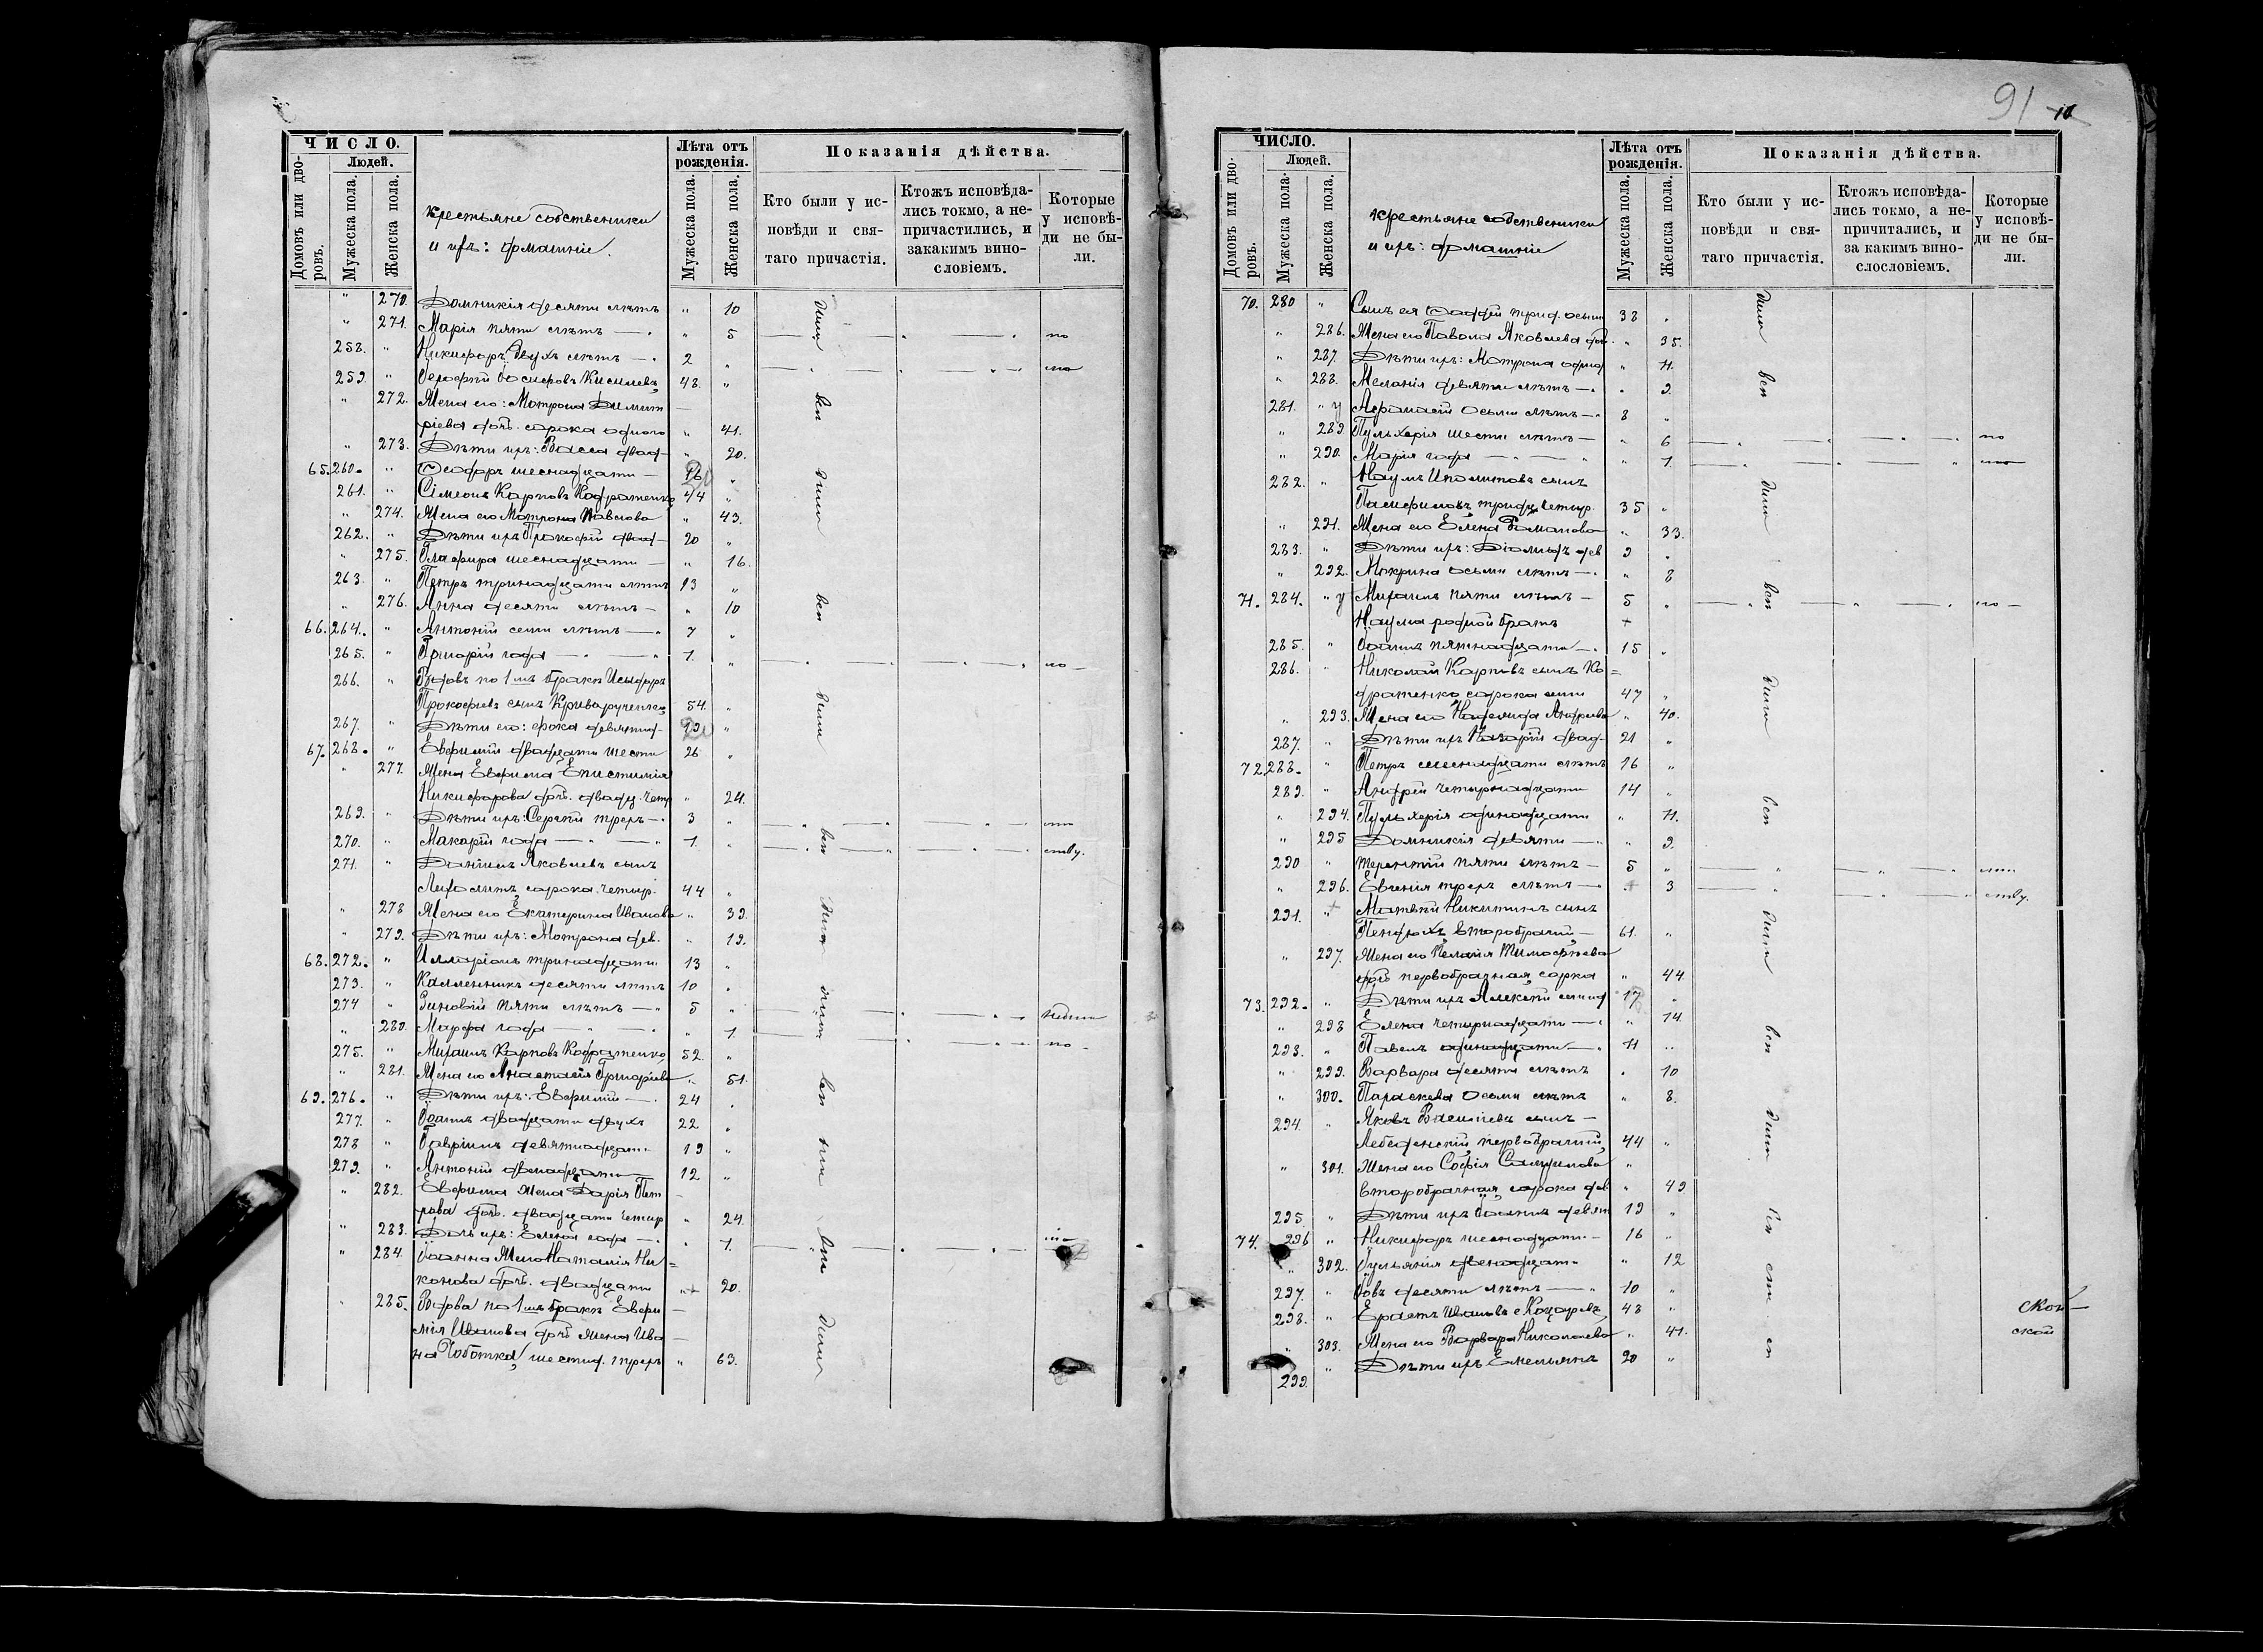 91
10
ЧИСЛО.
Домовъ или дворовъ.
Людей.
Мужеска пола.
Женска пола.
крестьяне собственики
и ихъ: домашніе.
Лѣта отъ рожденія.
Мужеска пола.
Женска пола.
Показанія дѣйства.
Кто были у исповѣди и святаго причастія.
Ктожъ исповѣдались токмо, а непричастились, и закакимъ винословіемъ.
Которые у исповѣди не были.
" 270. Домникія десяти лѣтъ " 10
" 271. Марія пяти лѣтъ — " 5 по
258. " Никифоръ двухъ лѣтъ — 2 "
259. " Іосифовъ 48. "
" 272. Жена его: Мотрона Димит
ріева дочь. сорока одного " 41.
" 273. Дѣти ихъ: Васса двад- " 20.
65. 260. " Ѳеодоръ шеснадцати — 16 "
261. " Сімеонъ Карповъ Кодратенко 44 "
" 274. Жена его Мотрона Павлова " 43.
262. " Дѣти ихъ Прокофій двад- 20 "
" 275. Глафира шеснадцати — " 16.
263. " Петръ тринадцати лѣтъ 13 "
" 276. Анна десяти лѣтъ — " 10
66. 264. " Антоній семи лѣтъ — 7 "
265. " Григорій года — 1. " по —
266. " Вдовъ по 1мъ бракѣ
Прокофіевъ сынъ 54. "
267. " Дѣти его: девятнад- 19 "
67. 268. " Евфимій двадцати шести 26 "
" 277. Жена Евфима Епистимія
Никифорова дочь. двадц. четыр " 24.
269. " Дѣти ихъ: Сергѣй трехъ — 3 "
270. " Макарій года — 1. " ству.
271. " Даніилъ Яковлевъ сынъ
сорока четыр. 44 "
" 278 Жена его Екатерина Иванова " 39.
" 279. Дѣти ихъ: Мотрона дев. " 19.
68. 272. " Илларіонъ тринадцати 13 "
273. " Каллиникъ десяти лѣтъ 10 "
274 " Зиновій пяти лѣтъ — 5 "
" 280. Марфа года — " 1. по —
275. " Михаилъ Карповъ Кодратенко 52. "
" 281. Жена его Анастасія Григоріева " 51.
69. 276. " Дѣти ихъ: Евфимій — 24 "
277. " Іоаннъ двадцати двухъ 22 "
278 " Гавріилъ девятнадцати 19 "
279. " Антоній двенадцати 12 "
" 282. Евфима жена Дарія Пет
рова дочь. двадцати четыр " 24.
" 283. Дочь ихъ: Елена года — " 1.
" 284. Іоанна жена Наталія Ни=
конова дочь. двадцати " 20.
" 285. Вдова по 1мъ бракѣ Евфи
мія Иванова дочь жена Ива
на Чоботка, шестид. трехъ " 63.
ЧИСЛО.
Домовъ или дворовъ.
Людей.
Мужеска пола.
Женска пола.
крестьяне собственики
и ихъ: домашніе
Лѣта отъ рожденія.
Мужеска пола.
Женска пола.
Показанія дѣйства.
Кто были у исповѣди и святаго причастія.
Ктожъ исповѣдались токмо, а непричитались, и за какимъ винослословіемъ.
Которые у исповѣди не были.
70. 280 " Сынъ ея Фаддей трид. осьми 38 "
" 286. Жена его Павола Яковлева доч. " 35.
" 287. Дѣти ихъ: Мотрона одинад " 11.
" 288. Меланія девяти лѣтъ — " 9.
281. " у Афанасій осьми лѣтъ — 8 "
" 289 Пульхерія шести лѣтъ — " 6 по
" 290. Марія года — " 1.
282. " Наумъ Иполитовъ сынъ
тридц. четыр. 35 "
" 291. Жена его Елена Романова " 33.
283. " Дѣти ихъ: Діомидъ дев 9 "
" 292. Мокрина осьми лѣтъ — " 8
71. 284. " у Михаилъ пяти лѣтъ — 5 " по —
Наума родной братъ +
285. " Іоаннъ пятнадцати — 15 "
286. " Николай Карповъ сынъ Ко=
дратенко сорока семи 47 "
" 293. Жена его Надежда Андреева " 40.
287. " Дѣти ихъ Назарій двад- 21 "
72. 288. " Петръ шеснадцати лѣтъ 16 "
289. " Андрей четырнадцати 14 "
" 294. Пульхерія одинадцати " 11.
" 295 Домникія девяти — " 9.
290 " Терентій пяти лѣтъ — 5 "
" 296. Евгенія трехъ лѣтъ — + 3 ству.
291. + Матвѣй Никитинъ сынъ
Пендюхъ второбрачній — 61. "
" 297. Жена его Пелагія Тимофѣева
дочь первобрачная сорока " 44
73. 292. " Дѣти ихъ Алексѣй семнад 17 "
" 298 Елена четырнадцати — " 14.
293. " Павелъ одинадцати — 11 "
" 299. Варвара десяти лѣтъ " 10
" 300. Параскева осьми лѣтъ " 8.
294. " Яковъ Василіевъ сынъ —
Лебединскій, первобрачній, 44 "
" 301. Жена его Софія "
второбрачная, сорока дев. " 49
295. " Дѣти ихъ Іоаннъ девят 19 "
74. 296 " Никифоръ шеснадцати — 16 "
" 302. Іульянія двенадцати " 12
297. " Іовъ десяти лѣтъ — 10 "
298. " Ерастъ Ивановъ Кочаровъ 48 "
" 303. Жена его Варвара Николаева " 41.
299. " Дѣти ихъ Емельянъ 20 "